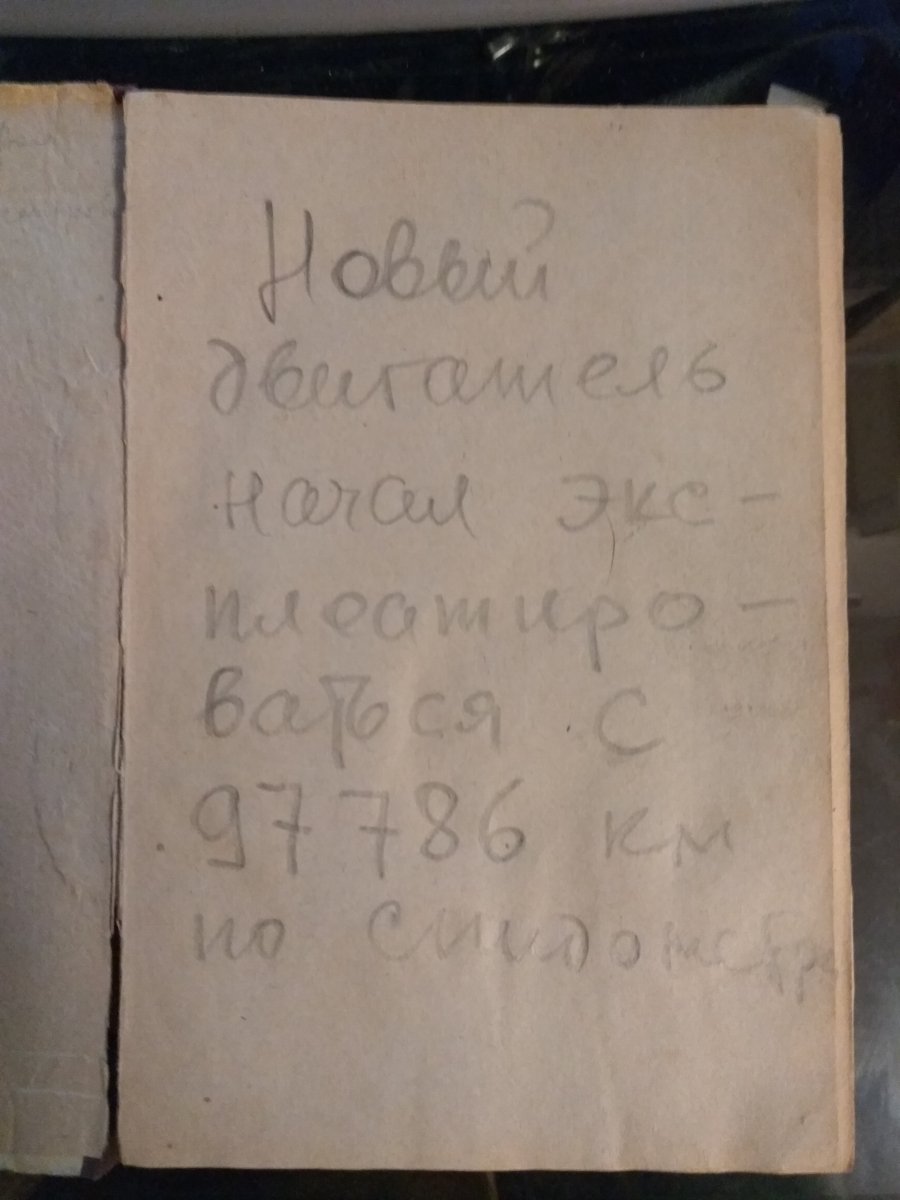 Новый
двигатель
начал экс-
плоатиро-
ваться с
97786 км
по спидометру